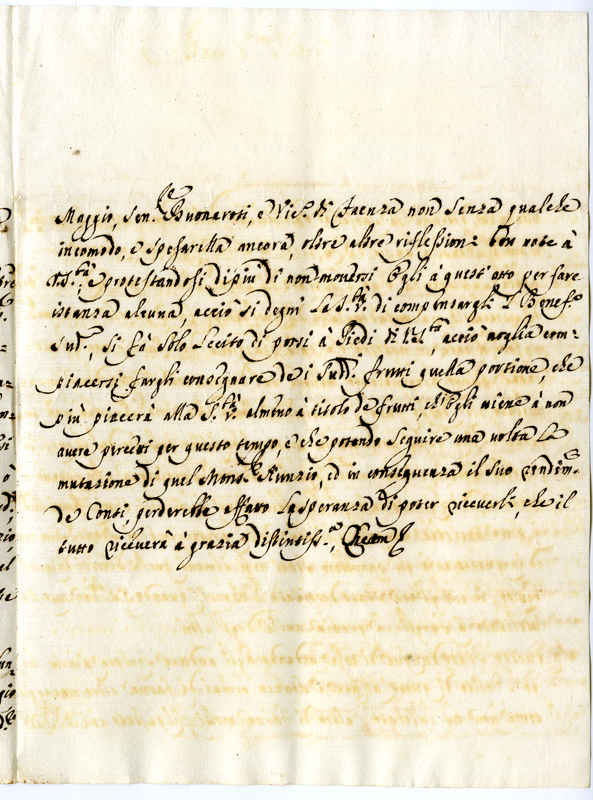 Maggio, Sen.re Buonaroti, e Vic.o di Faenza non senza qualche
incomodo, e spesarella ancora, oltre altre riflessioni = ben note à
V.S.tà, e protestandosi di più di non moversi Egli à quest'atto per fare
istanza alcuna, acciò si degni La S.tà V. di compensargli I Benef.o
Sud.o, si fà solo lecito di porsi à Piedi di Vel.tà, acciò voglia com=
piacersi fargli consegnare de i Sudd.i frutti quella portione, che
più piacerà alla S.tà V. almeno à titolo de frutti, ch'Egli viene à non
avere percetti per questo tempo, e che potendo seguire una volta La
mutazione di quel Mons.re Nunzio, ed in consequenza il suo rendim.to
de Conti, perderebbe affatto La speranza di poter riceverli, che il
tutto riceverà à grazia distintiss.a,